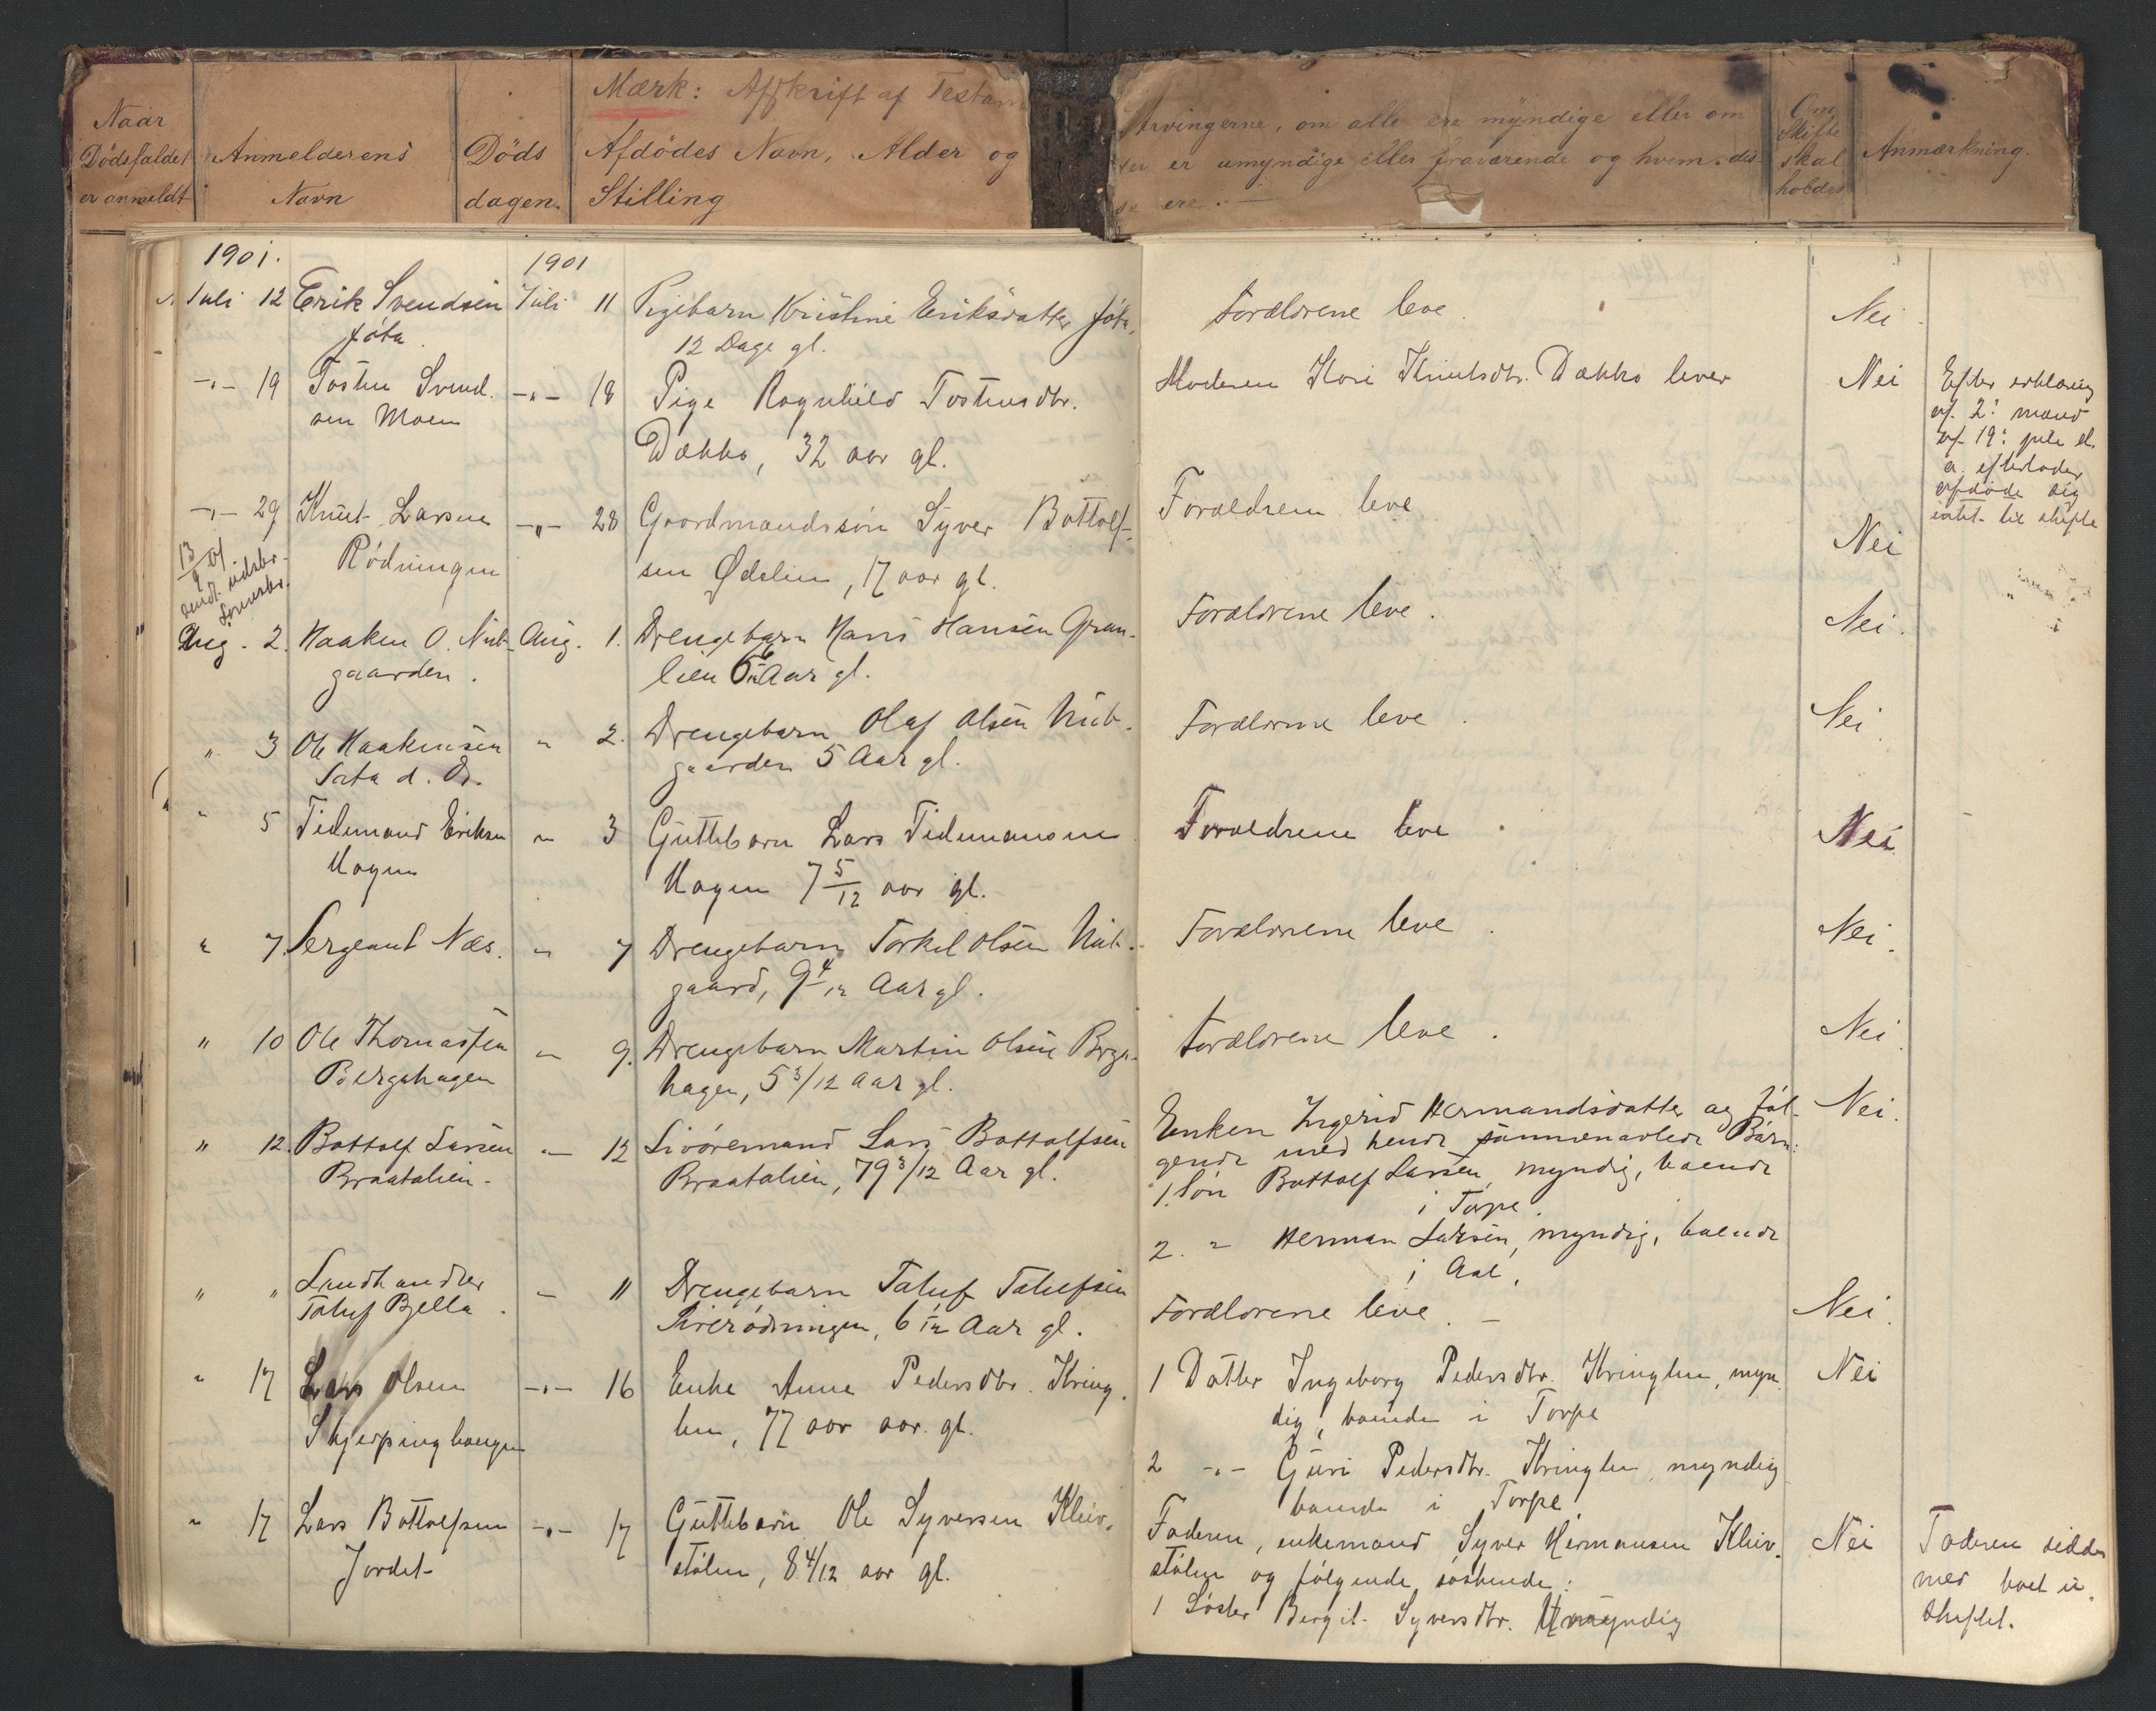 Mærk: Afskrift af Testam
Naar
Dødsfaldet
er anmeldt
Anmelderens
Navn
Døds
dagen.
Afdødes Navn, Alder og
Stilling
Arvingerne, om alle ere myndige eller om
er umyndige eller fraværende og hvem dis
se ere. —
Om
Skifte
skal
holdes
Anmærkning.
1901.
1901
Juli 12 Erik Svendsen Juli 11 Pigebarn Kristine Eriksdatter Jøta, Forældrene leve. Nei.
Jøta. 12 Dage gl.
-"- 19 Tosten Svend- -"- 18 Pige Ragnhild Tostensdtr. Moderen Kari Knutsdtr. Dækko lever Nei
sen Moen Dækko, 32 aar gl.
Efter erklæring
af 2: mænd
af 19: juli d.
a. efterlader
afdøde sig
intet til skifte
-"- 29 Knut Larsen -"- 28 Gaardmandssøn Syver Bottolf- Forældrene leve Nei
Rødningen sen Ødelien, 17 aar gl.
13/9 01
sendt
Aug. 2. Haaken O. Nub- Aug. 1. Drengebarn Hans Hansen Gran- Forældrene leve. Nei.
gaarden. lien 6 Aar gl.
" 3 Ole Haakensen " 2. Drengebarn Olaf Olsen Nub- Forældrene leve. Nei.
Sata d. Æ. gaarden 5 Aar gl.
" 5 Tidemand Eriksen " 3 Guttebarn Lars Tidemansen Forældrene leve. Nei
Hagen Hagen 7 5/12 aar gl.
" 7. Sergeant Næs. " 7 Drengebarn Torkel Olsen Nub- Forældrene leve. Nei.
gaard, 9 4/12 Aar gl.
" 10 Ole Thomassen " 9. Drengebarn Martin Olsen Brgs- Forældrene leve. Nei.
Bergshagen hagen, 5 3/12 Aar gl.
" 12. Bottolf Larsen " 12 Livøremand Lars Bottolfsen Enken Ingerid Hermandsdatter og føl- Nei.
Braatalien. Braatalien, 79 3/12 Aar gl. gende med hende sammenavlede Børn:
1. Søn Bottolf Larsen, myndig, boende
i Torpe.
2. " Herman Larsen, myndig, boende
i Aal.
" " Landhandler " 11 Drengebarn Taluf Talufsen Forældrene leve. — Nei.
Taluf Bjella. rødningen, 6 1/12 Aar gl.
" 17 Lars Olsen -"- 16 Enke Anne Pedersdtr. Kring- 1 Datter Ingeborg Pedersdtr. Kringlen, myn- Nei
Skjerpinghaugen len, 77 aar aar gl. dig, boende i Torpe
2 -"- Guri Pedersdtr. Kringlen, myndig
boende i Torpe
" 17 Lars Bottolfsen -"- 17 Guttebarn Ole Syversen Kleiv- Faderen, enkemand Syver Hermansen Kleiv- Nei Faderen sidder
Jordet stølen, 8 4/12 aar gl. stølen og følgende søskende: med boet u-
1 Søster Bergit Syversdtr. Umyndig skiftet.